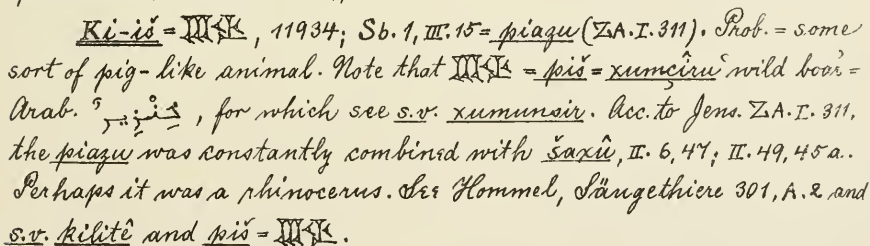 Ki-iš = 𒊺𒆠, 11934; Sb. 1, III. 15 = piazu (Z.A. I. 311). Prob. = some
sort of pig-like animal. Note that = piš = xumçîru wild boar =
Arab. خنزير, for which see s.v. xumunsir. Acc. to Jens. Z.A. I. 311,
the piazu was constantly combined with šaxû, II. 6, 47; II. 49, 45a.
Perhaps it was a rhinocerus. See Hommel, Säugethiere 301, A. 2 and
s.v. kilitê and piš = .